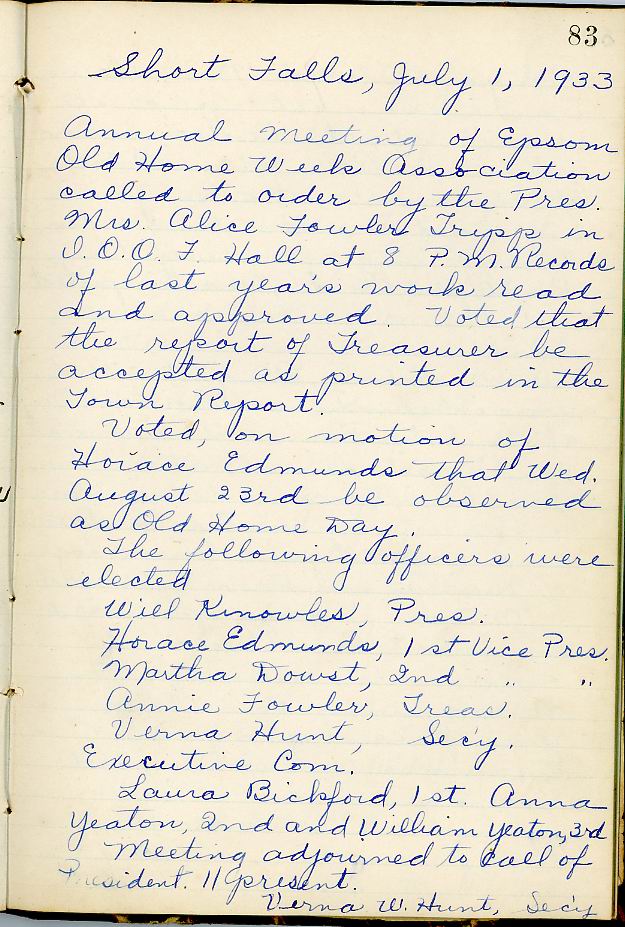 83
Short Falls, July 1, 1933
Annual meeting of Epsom
Old Home Week Association
called to order by the Pres.
Mrs. Alice Fowler Tripp in
I.O.O.F. Hall at 8 P.M. Records
of last year's work read
and approved. Voted that
the report of Treasurer be
accepted as printed in the
Town Report.
Voted, on motion of
Horace Edmunds that Wed.
August 23rd be observed
as Old Home Day.
The following officers were
elected
Will Knowles, Pres.
Horace Edmunds, 1st Vice Pres.
Martha Dowst, 2nd " "
Annie Fowler, Treas.
Verna Hunt, Sec'y.
Executive Com.
Laura Bickford, 1st. Anna
Yeaton, 2nd and William Yeaton, 3rd
Meeting adjourned to call of
President. 11 present.
Verna W. Hunt, Sec'y